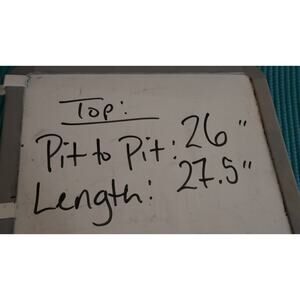 Top:
Pit to Pit: 26"
Length: 27.5"